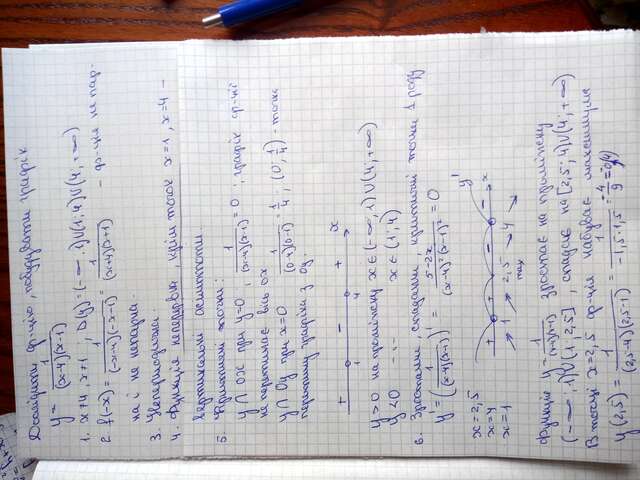 Дослідити ф-цію, побудувати графік
y = 1/((x-4)(x-1))
1. x≠4, x≠1 ; D(y) = (-∞; 1)∪(1; 4)∪(4; +∞)
2. f(-x) = 1/((-x-4)(-x-1)) = 1/((x+4)(x+1)) - ф-ція не пар-
на і не непарна
3. Неперіодична
4. Функція неперервна, крім точок x=1, x=4 -
вертикальні асимптоти.
5. точки:
y ∩ ox при y=0 ; 1/((x-4)(x-1)) = 0 ; графік ф-ції
не перетинає вісь ox
y ∩ Oy при x=0 1/((0-4)(0-1)) = 1/4 ; (0; 1/4) - точка
перетину графіка з Oy
+ 1 - 4 + x
y>0 на проміжку x∈(-∞; 1)∪(4; +∞)
y<0 -"- x∈(1; 4)
6. Зростання, спадання, критичні точки 1 роду
y' = (1/((x-4)(x-1)))' = (5-2x)/((x-4)²(x-1)²) = 0
x = 2,5
x = 4
x = 1
y'
+ + - - x
1 2,5 4
max
Функція y = 1/((x-4)(x-1)) зростає на проміжку
(-∞; 1)∪(1; 2,5] спадає на [2,5; 4)∪(4; +∞)
В точці x=2,5 ф-ція набуває максимуму
y(2,5) = 1/((2,5-4)(2,5-1)) = 1/(-1,5·1,5) = -4/9 =